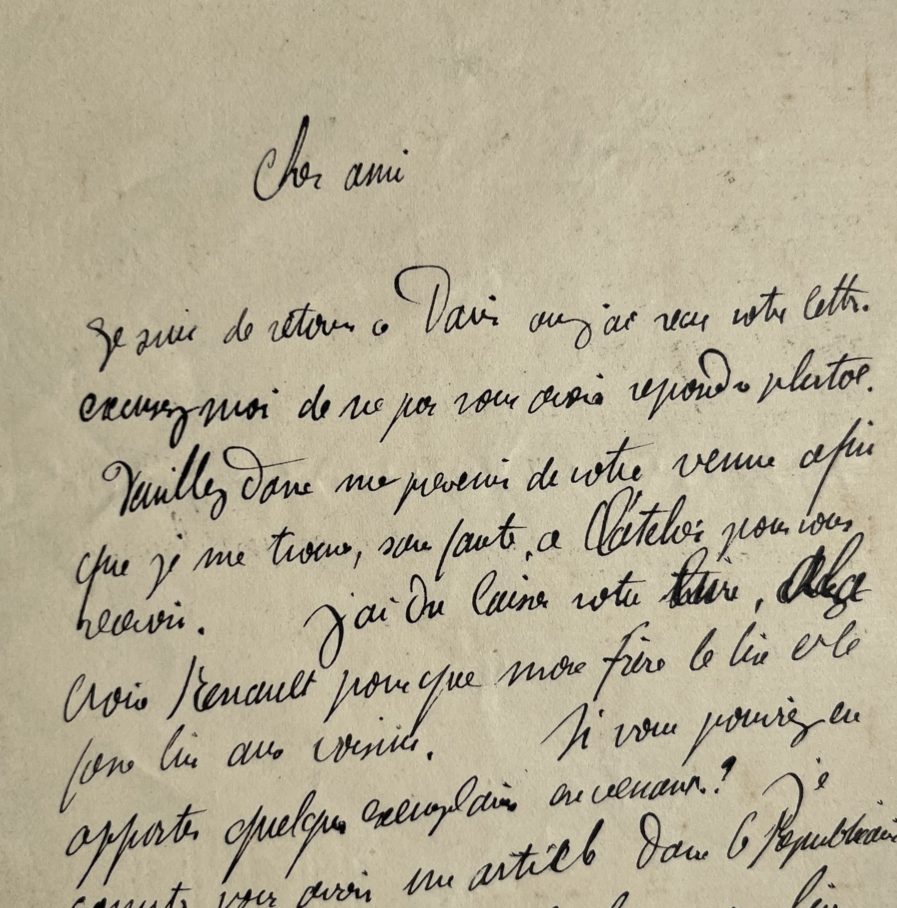 Cher ami
Je suis de retour a Paris ou j'ai recu votre lettre.
excusez moi de ne pas vous avoir repondu plutot.
Veuillez donc me prevenir de votre venue afin
que je me trouve, sans faute, a l'atelier pour vous
recevoir. J'ai du laisser votre livre, a la
Croix Renault pour que mon frère le lise et le
fasse lire aux voisins. Si vous pouviez en
apporter quelques exemplaires en venant? je
compte vous avoir un article dans le Republicain